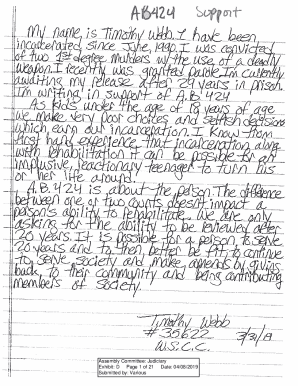 AB424 Support
My name, is Timothy Webb. I have been,
incarcerated since June, 1990. I was convicted
of two 1st degree murders w/the use of a deadly
weapon. I recently was granted parole. I'm currently
awaiting my release after 29 years in prison.
I'm writing in support of A.B. 424.
As kids under the age of 18 years of age
we make very poor choices and selfish decisions
which earn our incarceration. I know from
first hand experience that incarceration along
with rehabilitation it can be possible for an
impulsive, reactionary teenager to turn his
or her life around.
A.B. 424 is about the person. The difference
between one or two counts doesn't impact a
person's ability to rehabilitate. We are only
asking for the ability to be reviewed after
20 years. It is possible for a person, to serve
20 years and to then better be fit, to continue
to, serve society and make, amends by giving
back, to their community and being contributing
members of society.
Timothy Webb
# 35622
3/31/19
W.S.C.C.
Assembly Committee: Judiciary
Exhibit: D Page 1 of 21 Date: 04/08/2019
Submitted by: Various